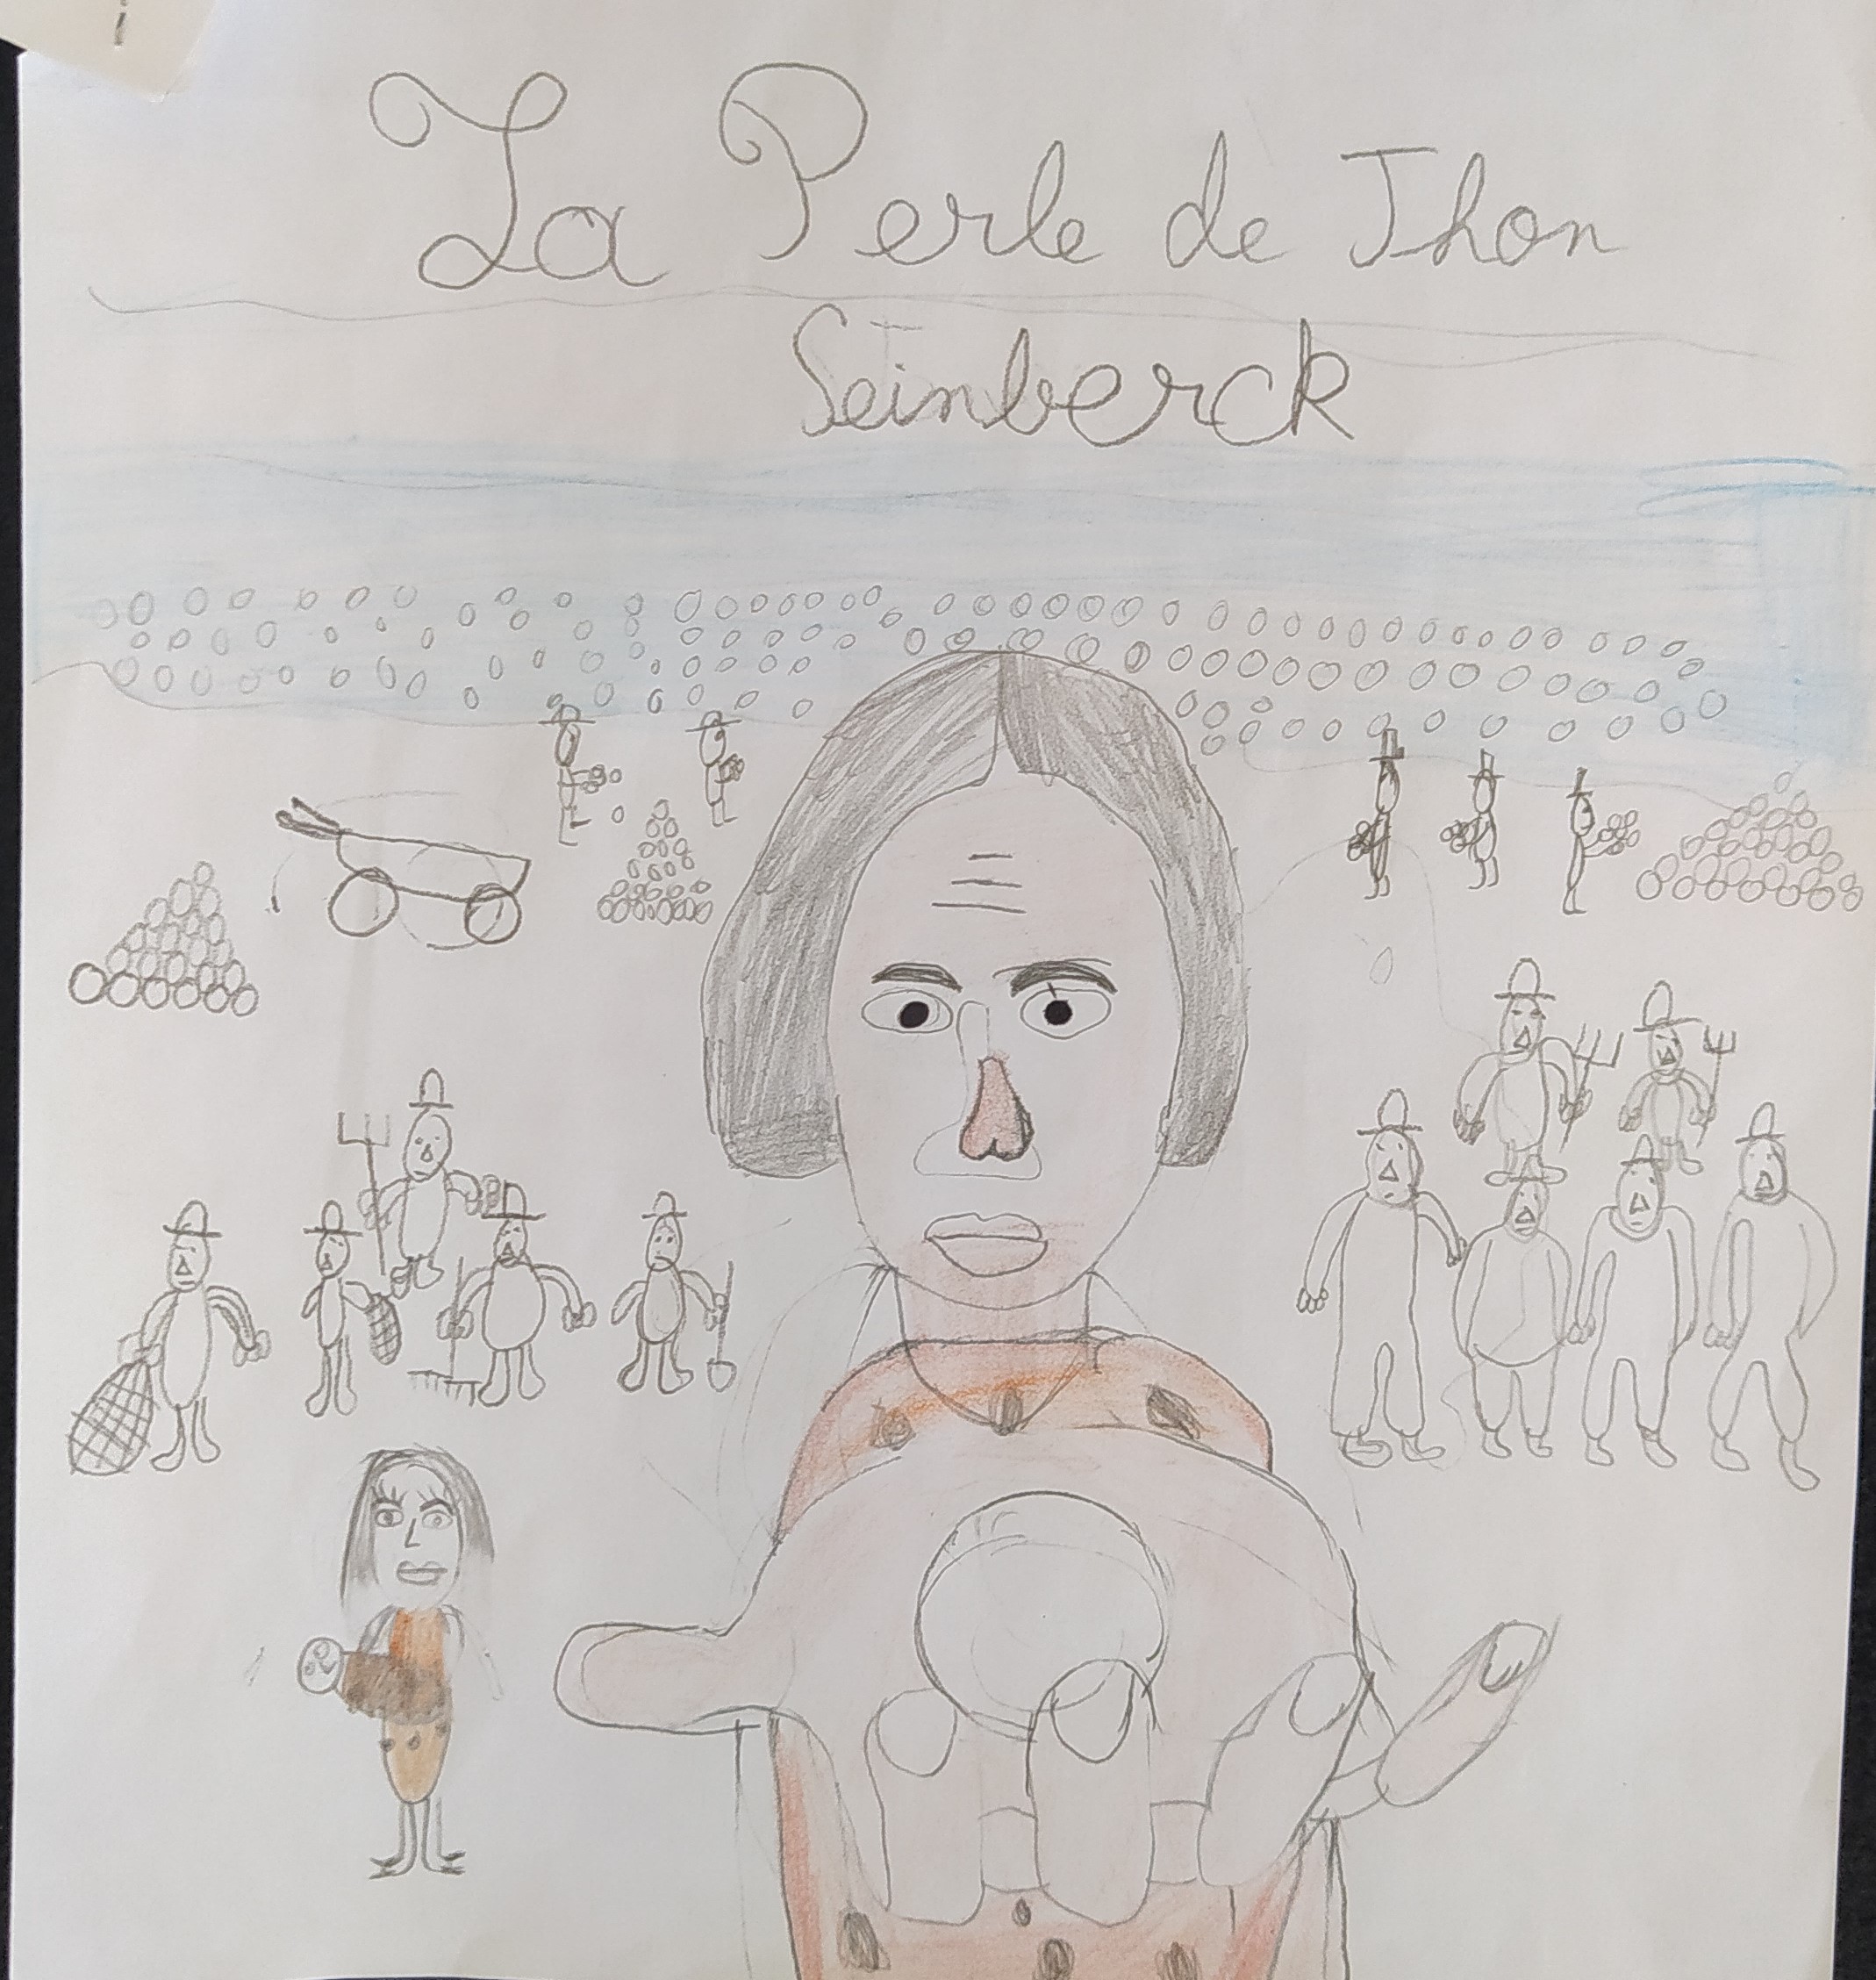 La Perle de Jhon
Seinberck